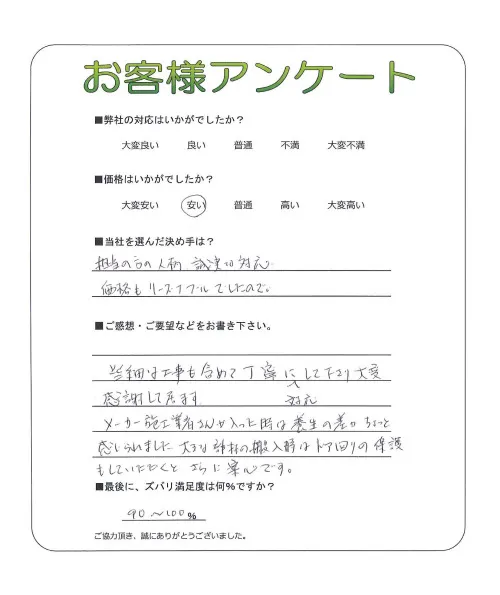 お客様アンケート
■弊社の対応はいかがでしたか？
大変良い 良い 普通 不満 大変不満
■価格はいかがでしたか？
大変安い 安い 普通 高い 大変高い
■当社を選んだ決め手は？
担当の方の人柄 誠実な対応
価格もリーズナブルでしたので。
■ご感想・ご要望などをお書き下さい。
工事も含めて丁寧に対応して下さり大変
感謝して居ます
メーカー施工業者さんが入った時は養生の差がちょっと
感じられました 大きな部材の搬入時はドア回りの保護
もしていただくと さらに安心です。
■最後に、ズバリ満足度は何%ですか？
90～100%
ご協力頂き、誠にありがとうございました。